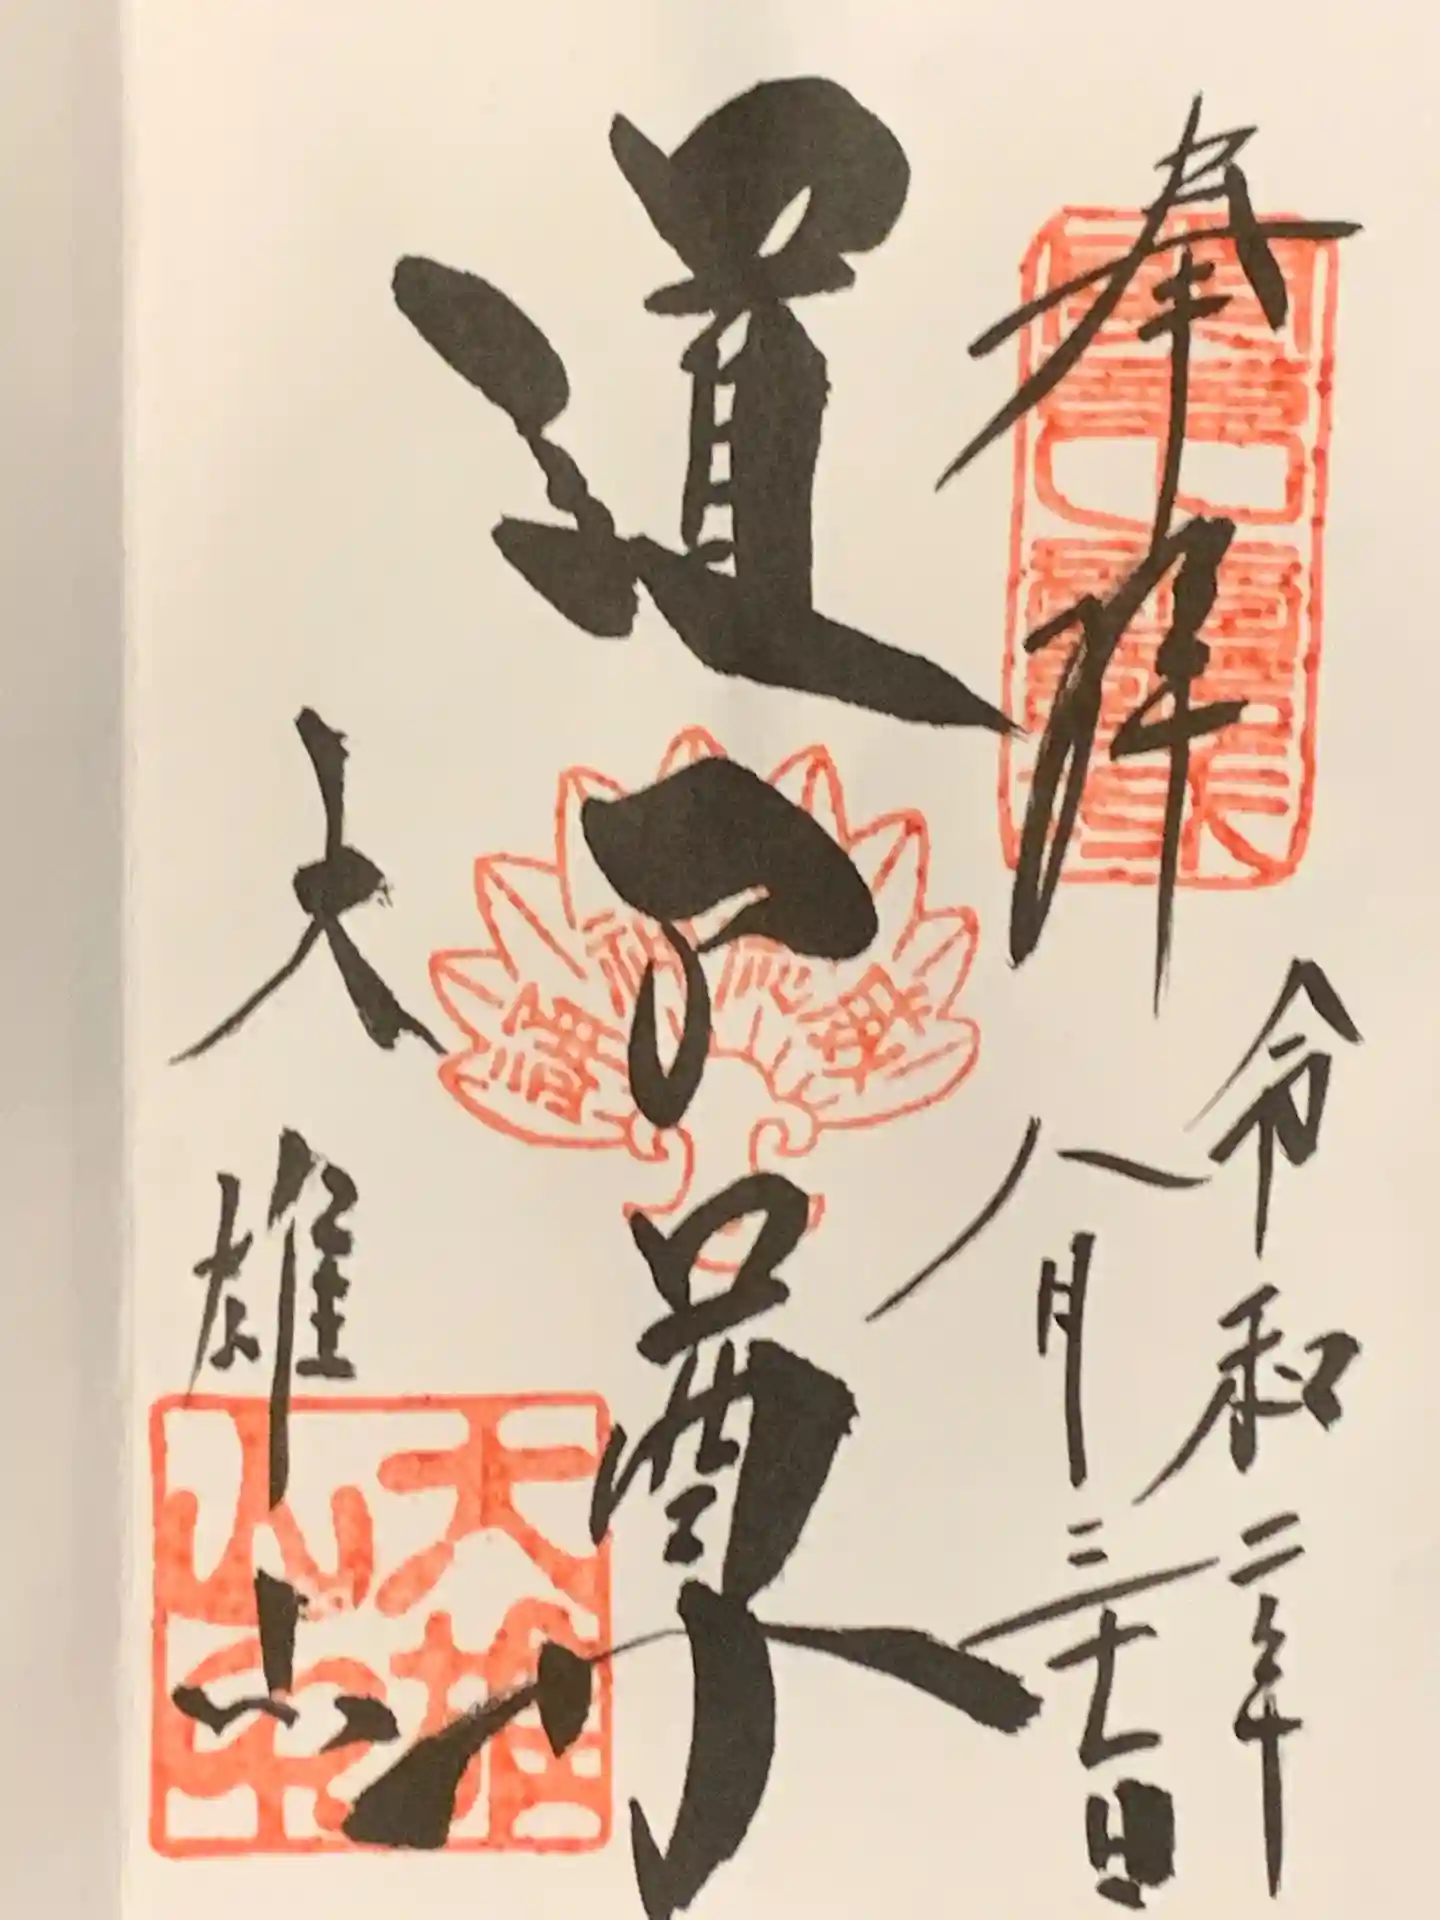 奉拝
令和二年
八月三十一日
道了尊
大雄山
大雄山印